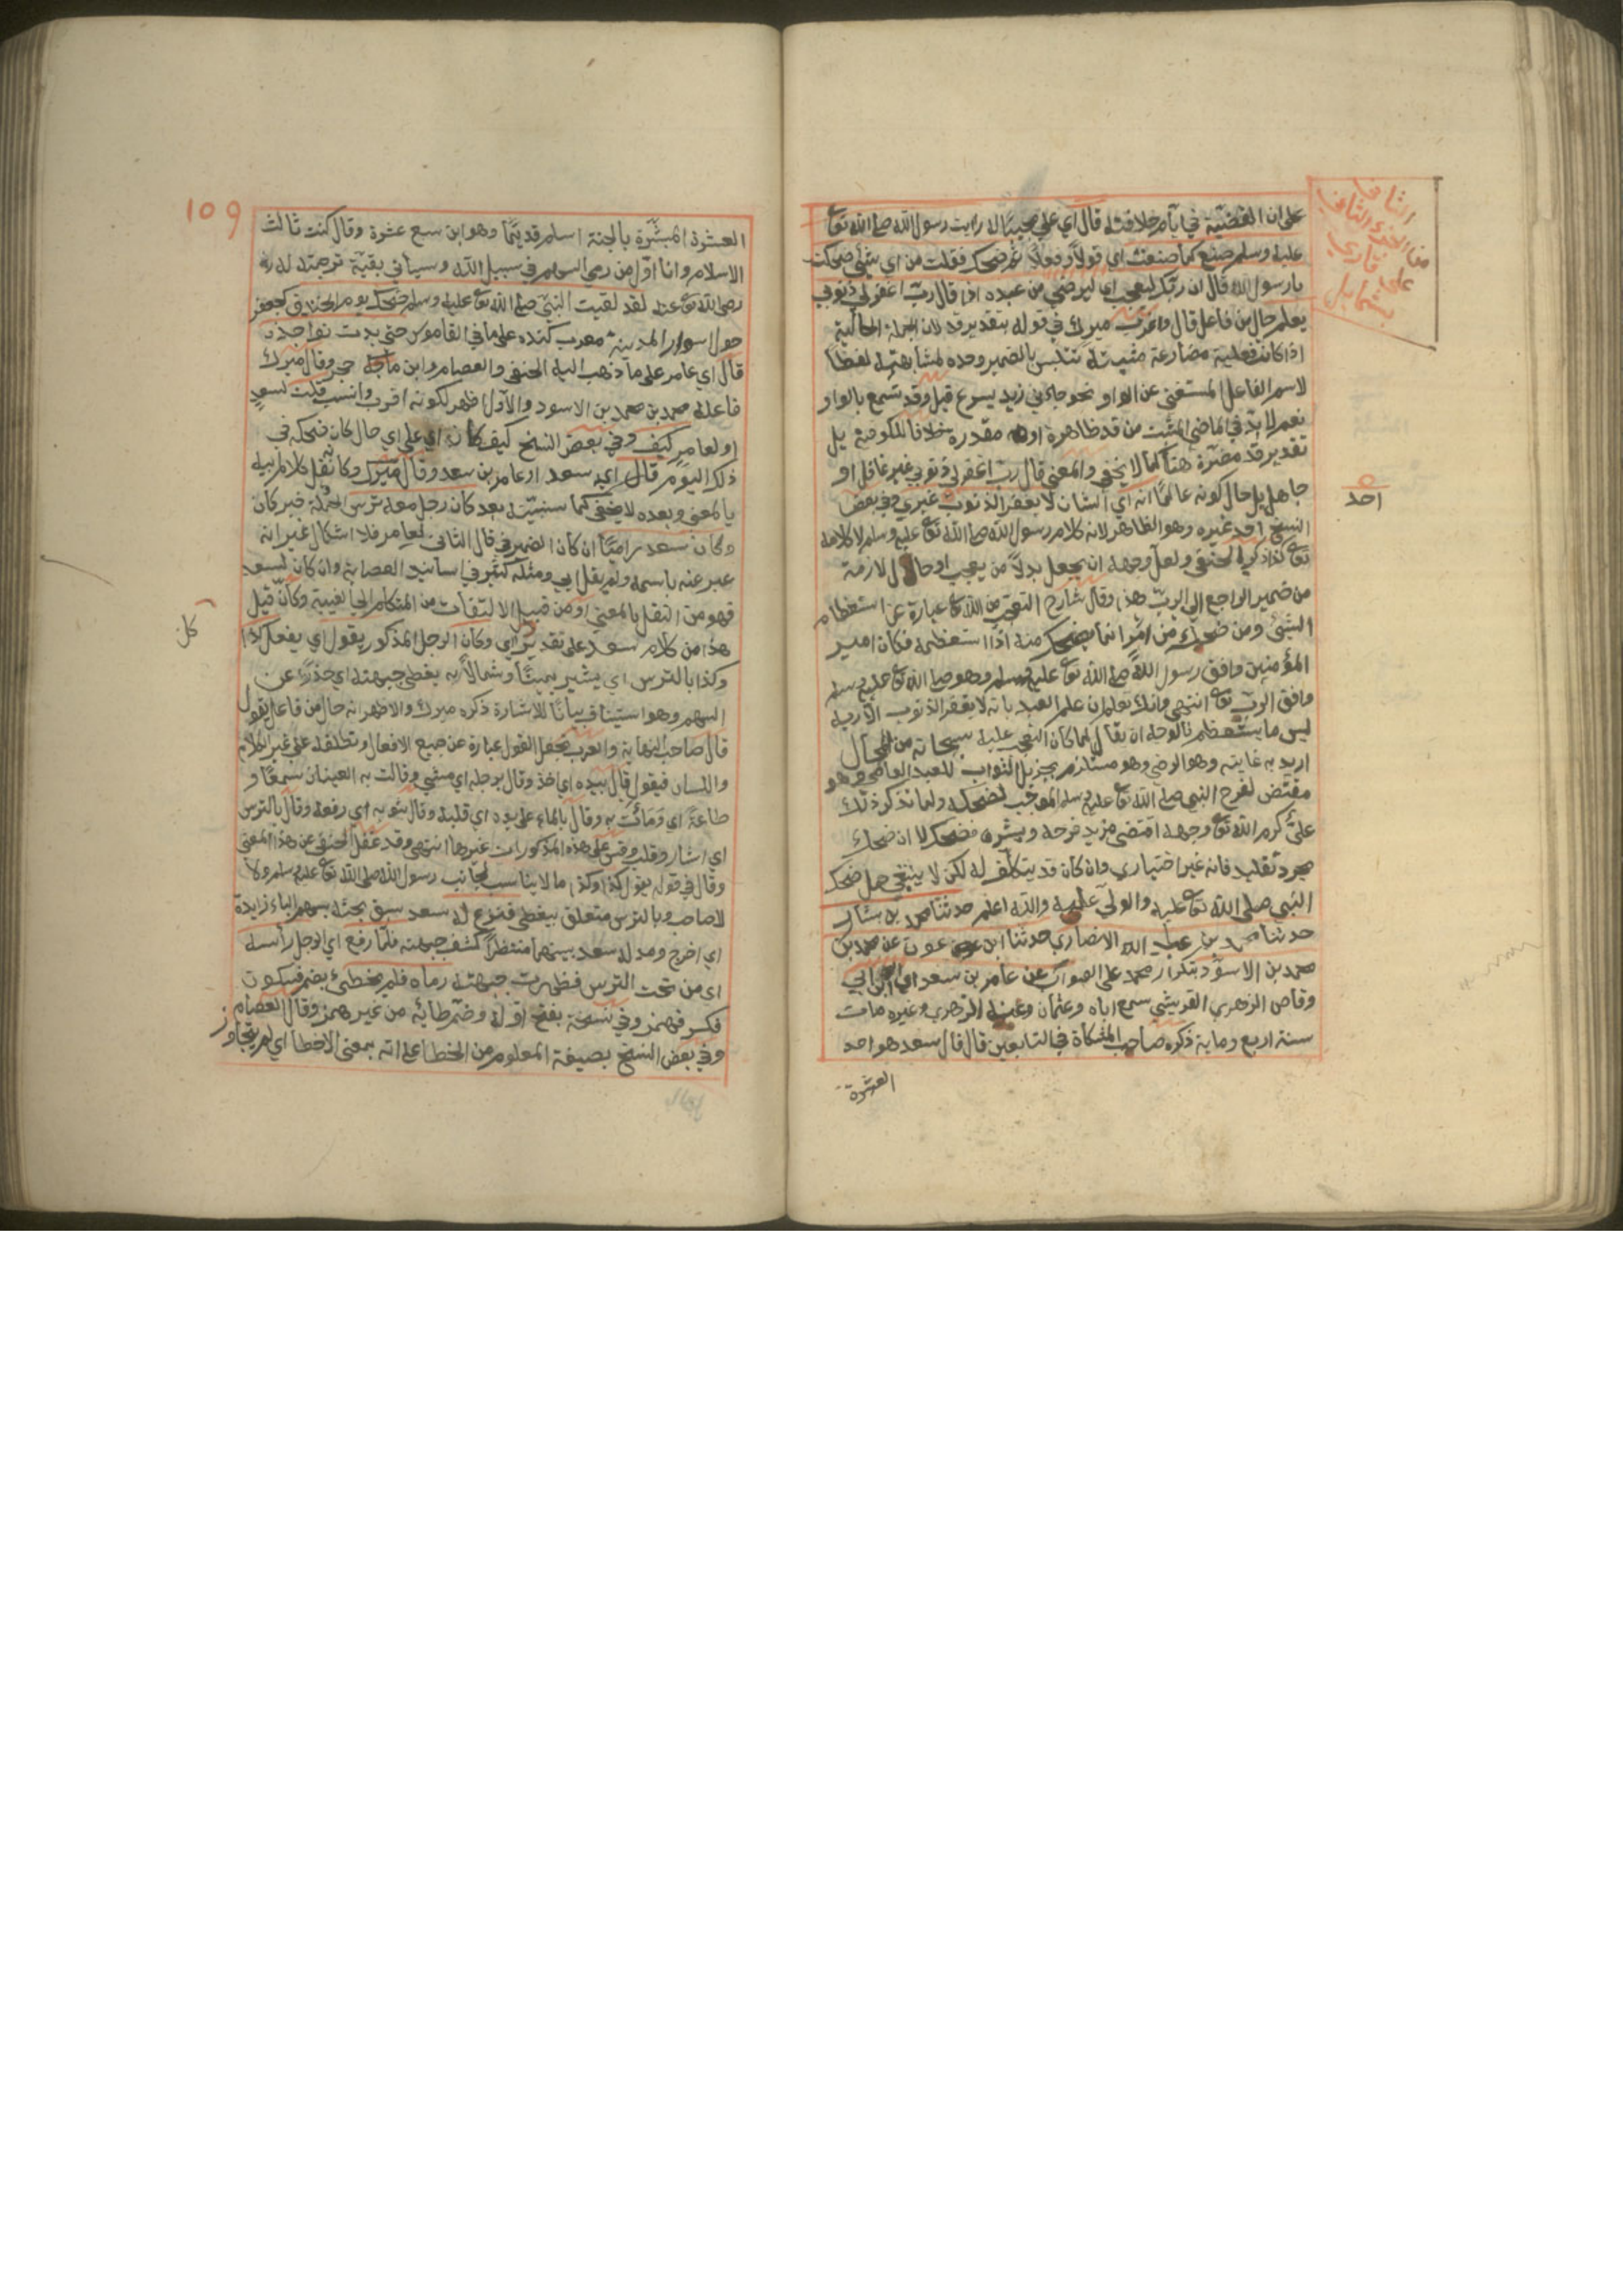 على ان القضية في ايام خلافته قال اي علي مجيبا له رايت رسول الله صلى الله تعا
عليه وسلم صنع كما صنعت اي قولا وفعلا ثم ضحك فقلت من اي شئ ضحكت
يا رسول الله قال ان ربك ليعجب اي ليرضى من عبده اذا قال رب اغفر لي ذنوبي
يعلم حال من فاعل قال واغرب ميرك في قوله بتقدير قد لان الجملة الحالية
اذا كانت فعلية مضارعة مثبتة تتلبس بالضمير وحده لمشابهتها لفظا
لاسم الفاعل المستغنى عن الواو نحو جاءني زيد يسرع قيل وقد سمع بالواو
نعم لا بد في الماضي المثبت من قد ظاهرة او مقدرة خلافا للكوفية بل
تقدير قد مضرة هنا كما لا يخفى والمعنى قال رب اغفر لي ذنوبي غير غافل او
جاهل بل حال كونه عالما انه اي الشان لا يغفر الذنوب غيري وفي بعض
النسخ احد غيره وهو الظاهر لانه كلام رسول الله صلى الله تعا عليه وسلم لا كلامه
تعا كذا ذكره الحنفي ولعل وجهه ان يجعل بدلا من يعجب او حال لازمة
من ضمير الراجع الى الرب هذا وقال شارح التعجب من الله تعا عبارة عن استعظام
الشئ ومن ضحك من امر انما يضحك منه اذا استعظمه فكان امير
المؤمنين وافق رسول الله صلى الله تعا عليه وسلم وهو صلى الله تعا عليه وسلم
وافق الرب تعا انتهى وانت تعلم ان علم العبد بانه لا يغفر الذنوب الا ربه
ليس ما يستعظم فالوجه ان يقال لما كان التعجب عليه سبحانه من المحال
اريد به غايته وهو الرضى وهو مستلزم بجزيل الثواب للعبد العاصي وهو
مقتض لفرح النبي صلى الله تعا عليه وسلم الموجب لضحكه ولما تذكر ذلك
علي كرم الله تعا وجهه اقتضى مزيد فرحه وبشره فضحك لا ان ضحك
مجرد تقليد فانه غير اختياري وان كان قد يتكلف له لكن لا ينبغي حمل ضحك
النبي صلى الله تعا عليه والولي عليه والله اعلم حدثنا محمد بن بشار
حدثنا محمد بن عبد الله الانصاري حدثنا ابن عون عن محمد بن
محمد بن الاسود بتكرار محمد على الصواب عن عامر بن سعد اي ابن ابي
وقاص الزهري القريشي سمع اباه وعثمان وعنه الزهري وغيره مات
سنة اربع وماية ذكره صاحب المشكاة في التابعين قال قال سعد هو احد
العشرة
الثاني
من الجزء الثاني
علي قاري
بشمايل
احد
109
العشرة المبشرة بالجنة اسلم قديما وهو ابن سبع عشرة وقال كنت ثالث
الاسلام وانا اول من رمى السهم في سبيل الله وسياتي بقية ترجمته له
رضي الله تعا عنه لقد لقيت النبي صلى الله تعا عليه وسلم ضحك يوم الخندق كجعفر
حول اسوار المدينة معرب كنده على ما في القاموس حتى بدت نواجذه
قال اي عامر على ما ذهب اليه الحنفي والعصام وابن حجر وقال ميرك
فاعله محمد بن محمد بن الاسود والاول اظهر لكونه اقرب وانسب قلت لسعد
او لعامر كيف وفي بعض النسخ كيف كان اي على اي حال كان ضحكه في
ذلك اليوم قال اي سعد او عامر بن سعد وقال ميرك وكانه نقل كلام ابيه
بالمعنى وبعده لا يخفى كما سنبينه بعد كان رجل معه ترس الجملة خبر كان
وكان سعد راميا ان كان الضمير في قال الثاني لعامر فلا اشكال غير انه
عبر عنه باسمه ولم يقل ابي ومثله كثير في اسانيد الصحابة وان كان لسعد
فهو من النقل بالمعنى او من قبيل الالتفات من المتكلم الى الغيبة وكان قيل
هذا من كلام سعد على تقدير اي وكان الرجل المذكور يقول اي يفعل كذا
وكذا بالترس اي يشير يمينا وشمالا به يغطي جبهته اي حذرا عن
السهم وهو استيناف بيانا للاشارة ذكره ميرك والاظهر انه حال من فاعل يقول
قال صاحب النهاية والعرب تجعل القول عبارة عن جميع الافعال وتطلقه على غير الكلام
واللسان فيقول قال بيده اي اخذ وقال برجله اي مشى وقالت به العينان سمعا و
طاعة اي اومات به وقال بالماء على يده اي قلبه وقال بثوبه اي رفعه وقال بالترس
اي اشار وقلب وقس على هذه المذكورات غيرها انتهى وقد غفل الحنفي عن هذا المعنى
وقال في قوله يقول كذا وكذا ما لا يناسب لجانب رسول الله صلى الله تعا عليه وسلم ولا
لاصحابه وبالترس متعلق بيغطي فنزع له سعد سبق بحثه بسهم الباء زايدة
اي اخرج ومد له سعد بسهم منتظرا كشف جبهته فلما رفع اي الرجل راسه
اي من تحت الترس فظهرت جبهته رماه فلم يخطئ بضم فسكون
فكسر فهمز وفي نسخة بفتح اوله وضم طائه من غير همز وقال العصام
وفي بعض النسخ بصيغة المعلوم من الخطا على انه بمعنى الاخطا اي لم يتجاوز
كل